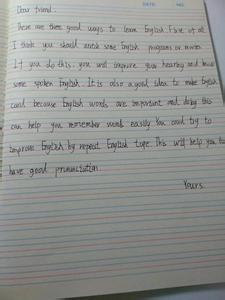 Dear friend.
There are three good ways to learn English. First of all
I think you should watch some English programs or movies
If you do this, you will improve your hearing and know
some spoken English. It is also a good idea to make English
card because English words are important and doing this
can help you remember words easily. You could try to
improve English by repeat English tape. This will help you to
have good pronunciation.
Yours.